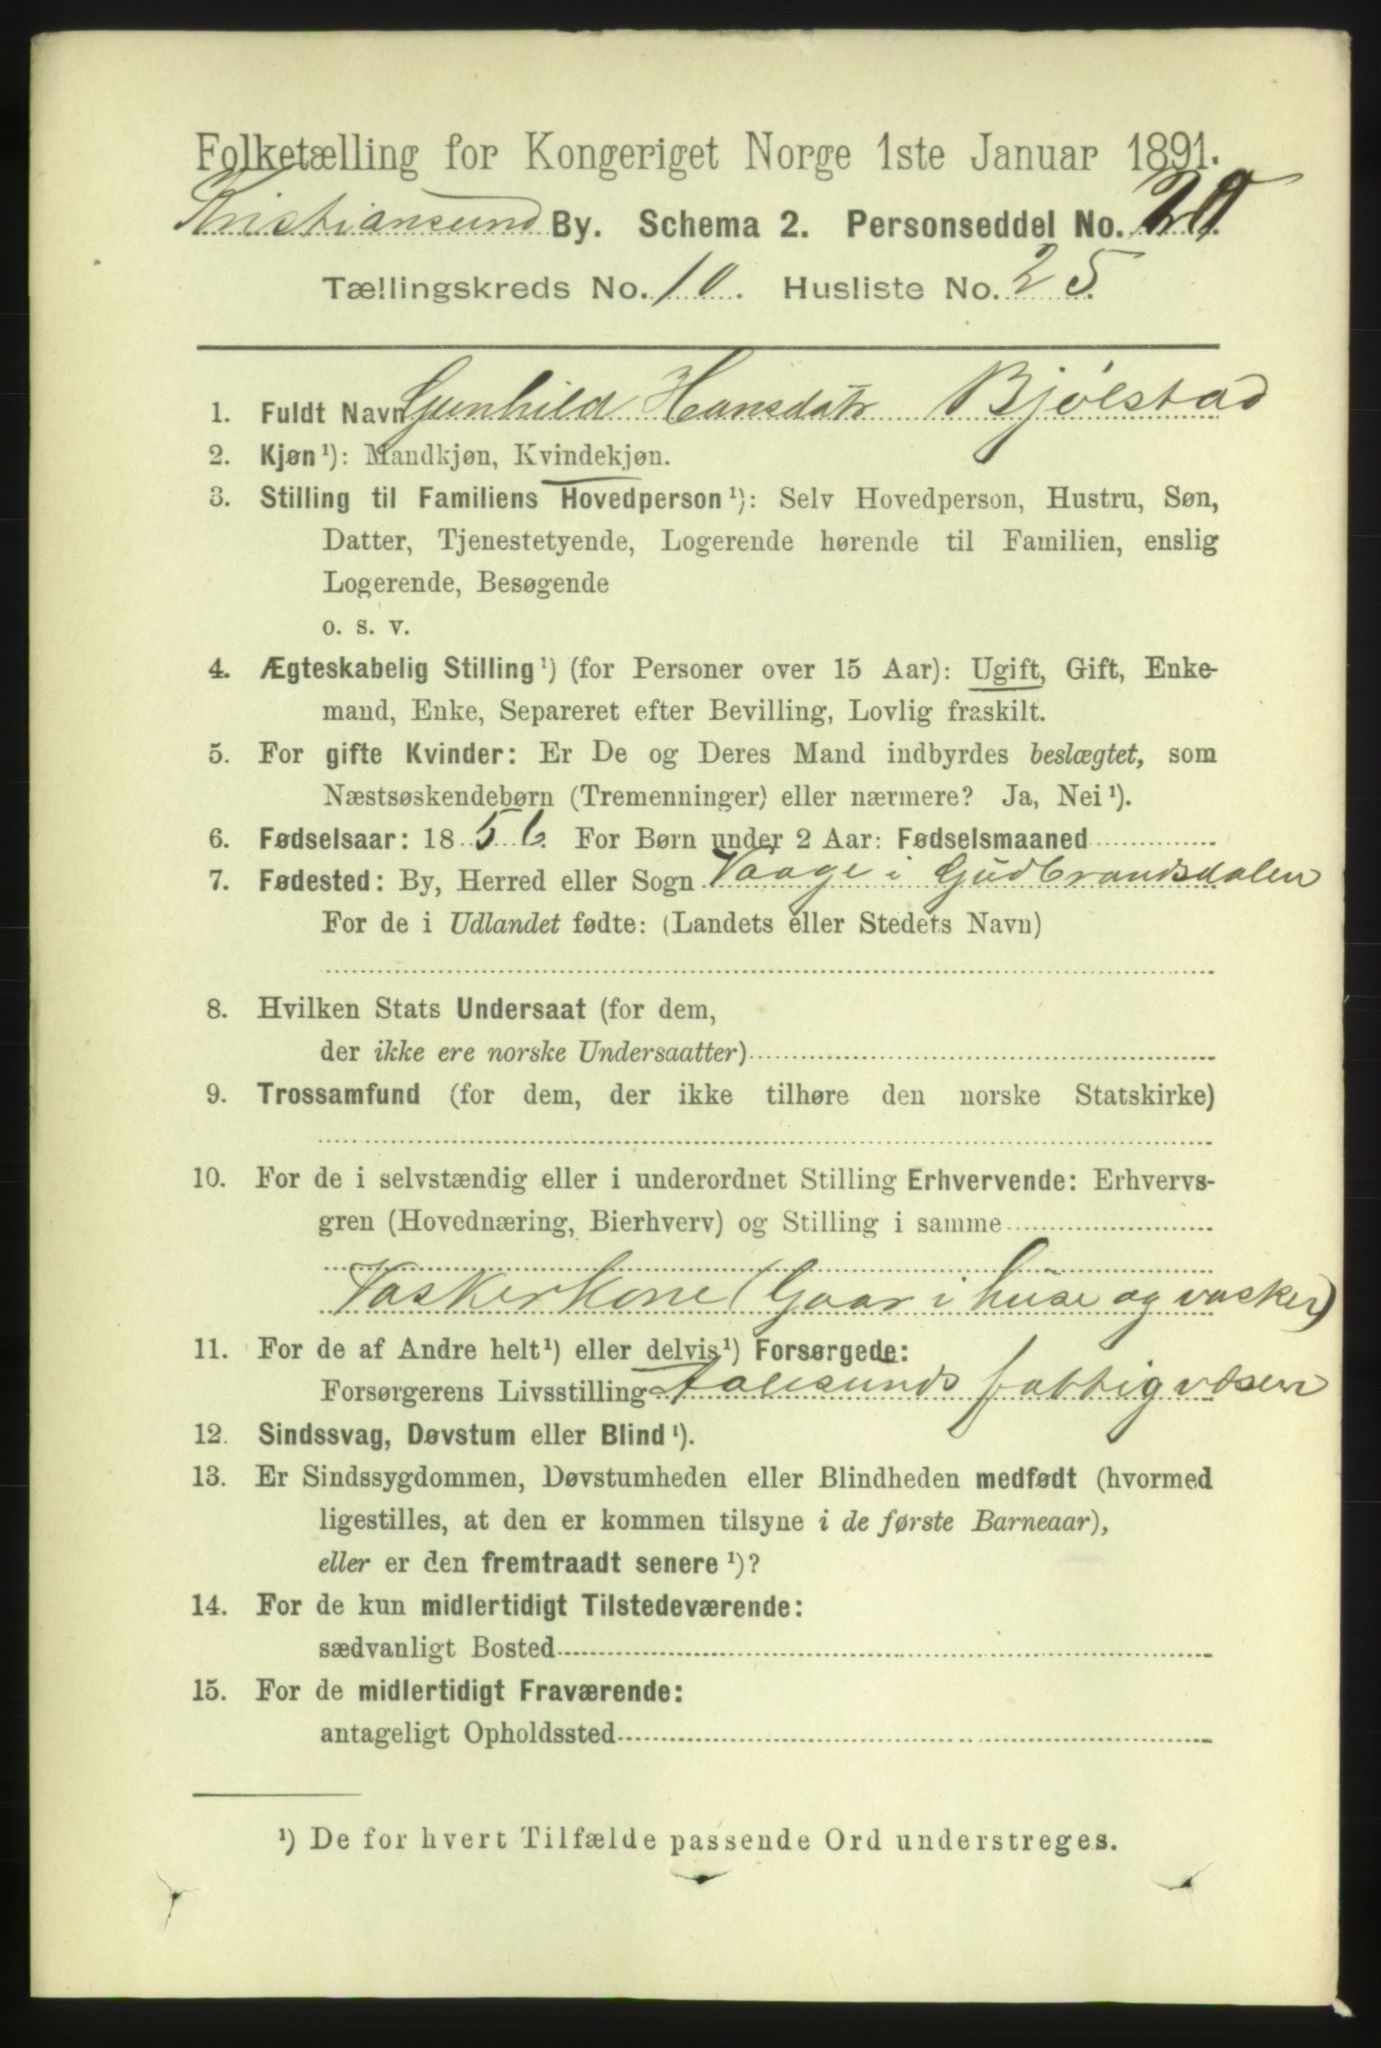 Folketælling for Kongeriget Norge 1ste Januar 1891.
Kristiansund By. Schema 2. Personseddel No.
Tællingskreds No. 10. Husliste No. 25.
1. Fuldt Navn Gunhild Hansdatr Bjølstad
2. Kjøn¹): Mandkjøn, Kvindekjøn.
3. Stilling til Familiens Hovedperson¹): Selv Hovedperson, Hustru, Søn,
Datter, Tjenestetyende, Logerende hørende til Familien, enslig
Logerende, Besøgende
o. s. v.
4. Ægteskabelig Stilling¹) (for Personer over 15 Aar): Ugift, Gift, Enke-
mand, Enke, Separeret efter Bevilling, Lovlig fraskilt.
5. For gifte Kvinder: Er De og Deres Mand indbyrdes beslægtet, som
Næstsøskendebørn (Tremenninger) eller nærmere? Ja, Nei¹).
6. Fødselsaar: 1856. For Børn under 2 Aar: Fødselsmaaned
7. Fødested: By, Herred eller Sogn Vaage i Gudbrandsdalen
For de i Udlandet fødte: (Landets eller Stedets Navn)
8. Hvilken Stats Undersaat (for dem,
der ikke ere norske Undersaatter)
9. Trossamfund (for dem, der ikke tilhøre den norske Statskirke)
10. For de i selvstændig eller i underordnet Stilling Erhvervende: Erhvervs-
gren (Hovednæring, Bierhverv) og Stilling i samme
Vaskerkone (Gaar i huse og vasker)
11. For de af Andre helt¹) eller delvis¹) Forsørgede:
Forsørgerens Livsstilling Aalesunds fattigvæsen
12. Sindssvag, Døvstum eller Blind¹).
13. Er Sindssygdommen, Døvstumheden eller Blindheden medfødt (hvormed
ligestilles, at den er kommen tilsyne i de første Barneaar),
eller er den fremtraadt senere¹)?
14. For de kun midlertidigt Tilstedeværende:
sædvanligt Bosted
15. For de midlertidigt Fraværende:
antageligt Opholdssted
¹) De for hvert Tilfælde passende Ord understreges.